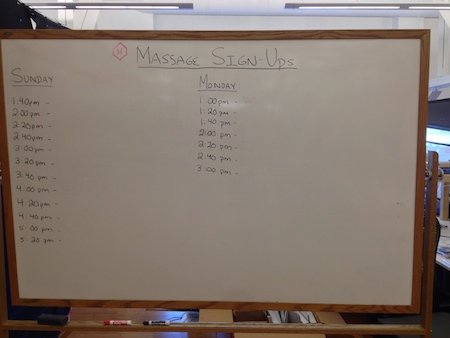 H MASSAGE SIGN-UPS
SUNDAY
1:40pm -
2:00 pm -
2:20pm -
2:40pm -
3:00 pm -
3:20 pm -
3:40 pm -
4:00 pm -
4:20 pm -
4:40 pm -
5:00 pm -
5:20 pm -
MONDAY
1:00pm -
1:20 pm -
1:40 pm -
2:00 pm -
2:20 pm -
2:40 pm -
3:00 pm -